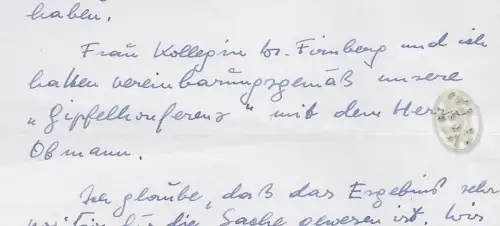 haben.
Frau Kollegin Dr. Firnberg und ich
hatten vereinbarungsgemäß unsere
„Gipfelkonferenz" mit dem Herrn
Obmann.
Ich glaube, daß das Ergebnis sehr
für die Sache gewesen ist. Wir